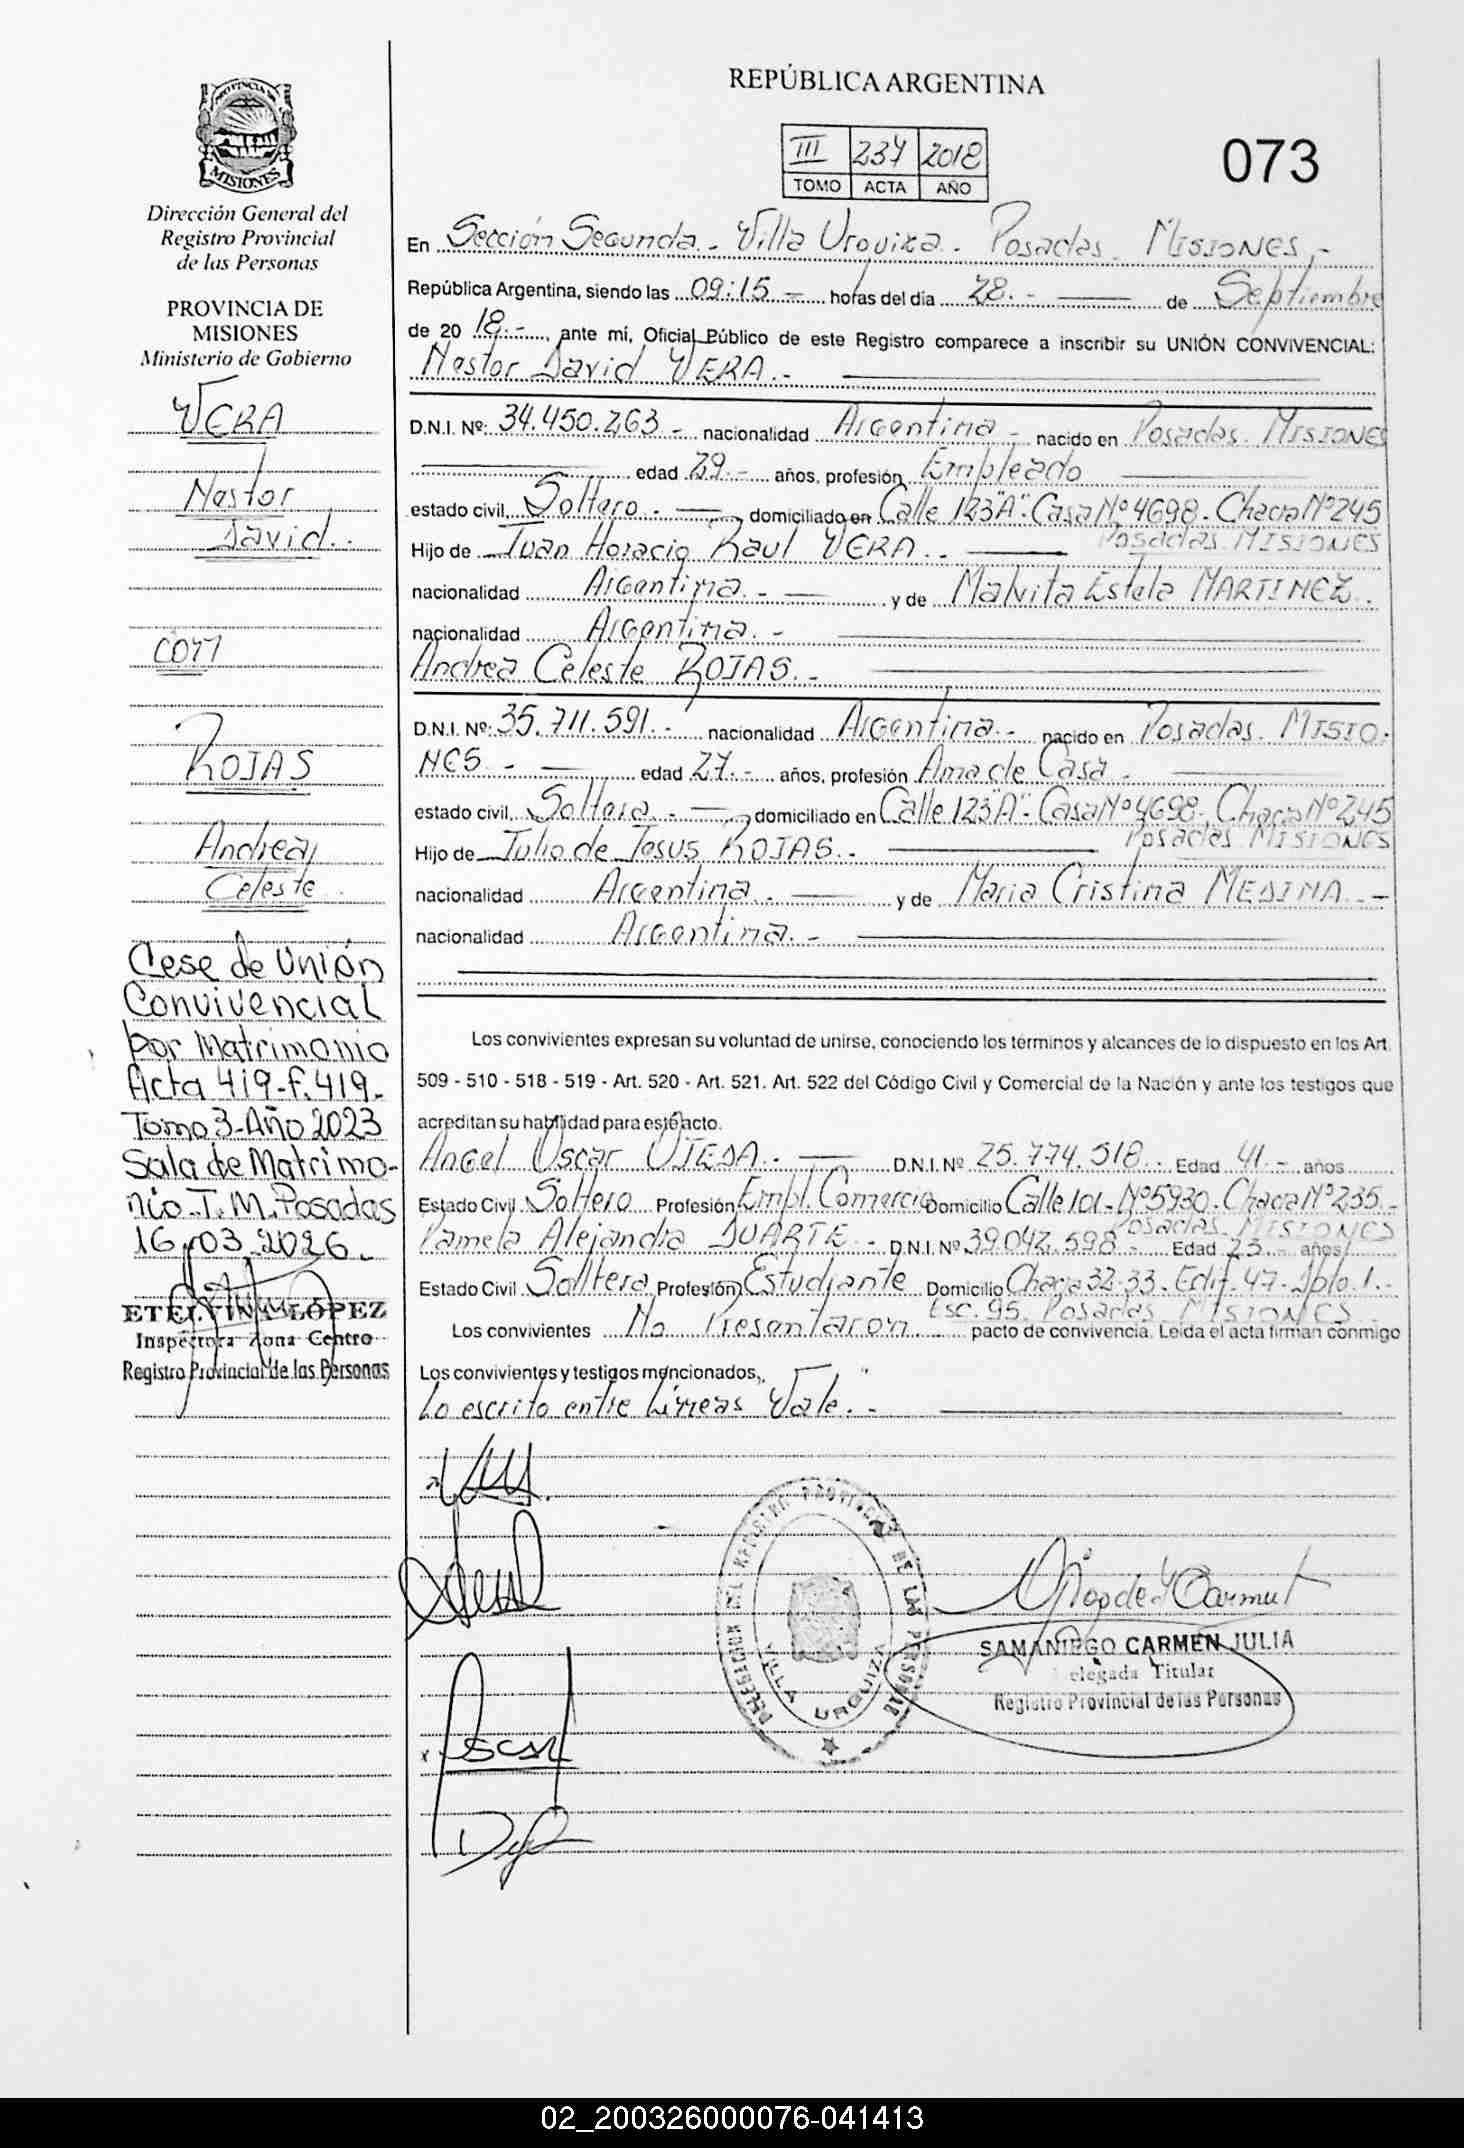 PROVINCIA DE
MISIONES
Dirección General del
Registro Provincial
de las Personas
PROVINCIA DE
MISIONES
Ministerio de Gobierno
VERA
Nestor
David.
con
ROJAS
Andrea
Celeste
Cese de Unión
Convivencial
por Matrimonio
Acta 419-f.419-
Tomo 3-Año 2023
Sala de Matrimo-
nio-T.M.Posadas
16-03-2026.
ETELVINA LÓPEZ
Inspectora Zona Centro
Registro Provincial de las Personas
REPÚBLICA ARGENTINA
III 237 2018
TOMO ACTA AÑO
073
En Sección Segunda.- Villa Urquiza.- Posadas. MISIONES.-
República Argentina, siendo las 09:15 - horas del día 28.- de Septiembre
de 20 18.- ante mí, Oficial Público de este Registro comparece a inscribir su UNIÓN CONVIVENCIAL:
Nestor David VERA.-
D.N.I. Nº: 34.450.263 - nacionalidad Argentina - nacido en Posadas. MISIONES
edad 29.- años, profesión Empleado
estado civil, Soltero.- domiciliado en Calle 123"A"- Casa Nº 4698- Chacra Nº 245
Posadas. MISIONES
Hijo de Juan Horacio Raul VERA.-
nacionalidad Argentina.- y de Malvita Estela MARTINEZ.
nacionalidad Argentina.-
Andrea Celeste ROJAS.-
D.N.I. Nº: 35.711.591.- nacionalidad Argentina.- nacido en Posadas. MISIO-
NES.- edad 27.- años, profesión Ama de Casa -
estado civil, Soltera.- domiciliado en Calle 123"A"- Casa Nº 4698- Chacra Nº 245
Posadas MISIONES
Hijo de Julio de Jesus ROJAS.-
nacionalidad Argentina.- y de Maria Cristina MEDINA.-
nacionalidad Argentina.-
Los convivientes expresan su voluntad de unirse, conociendo los términos y alcances de lo dispuesto en los Art.
509 - 510 - 518 - 519 - Art. 520 - Art. 521. Art. 522 del Código Civil y Comercial de la Nación y ante los testigos que
acreditan su habilidad para este acto.
Angel Oscar OJEDA.- D.N.I. Nº 25.774.518.- Edad 41.- años
Estado Civil Soltero Profesión Empl. Comercio Domicilio Calle 101- Nº 5930- Chacra Nº 235.-
Posadas. MISIONES
Pamela Alejandra DUARTE.- D.N.I. Nº 39.042.598 - Edad 23.- años
Estado Civil Solltera Profesión Estudiante Domicilio Chacra 32-33. Edif. 47- Dpto. 1.-
Esc. 95. Posadas. MISIONES
Los convivientes No Presentaron.- pacto de convivencia. Leída el acta firman conmigo
Los convivientes y testigos mencionados,
"Lo escrito entre Lineas Vale".-
DELEGACION DEL REGISTRO PROVINCIAL DE LAS PERSONAS
VILLA URQUIZA
SAMANIEGO CARMEN JULIA
elegada Titular
Registro Provincial de las Personas
02_200326000076-041413